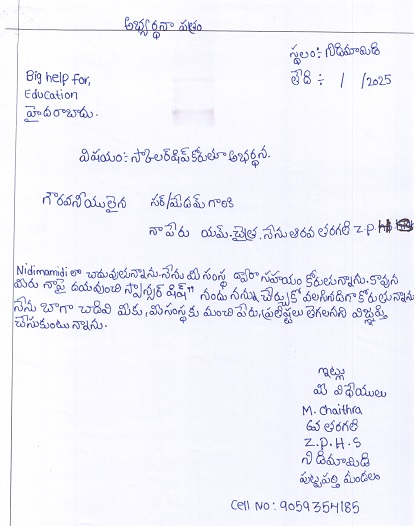 అభ్యర్థనా పత్రం
స్థలం: నిడిమామిడి
తేది : / /2025
Big help for,
Education
హైదరాబాదు.
విషయం: స్కాలర్‌షిప్ కోరుతూ అభ్యర్థన.
గౌరవనీయులైన సర్/మేడమ్ గారికి
నా పేరు యమ్.చైత్ర. నేను ఆరవ తరగతి Z.P.H
Nidimamidi లో చదువుతున్నాను. నేను మీ సంస్థ ద్వారా సహాయం కోరుతున్నాను. కావున
మీరు నాపై దయవుంచి స్పాన్సర్ షిప్" నందు నన్ను చేర్చుకో వలసినదిగా కోరుతున్నాను
నేను బాగా చదివి మీకు, మీ సంస్థకు మంచి పేరు, ప్రతిష్టలు తెగలనని విజ్ఞప్తి
చేసుకుంటున్నాను.
ఇట్లు
మీ విధేయులు
M. Chaithra
6వ తరగతి
Z.P.H.S
నిడిమామిడి
పుట్టపర్తి మండలం
Cell No: 9059354185